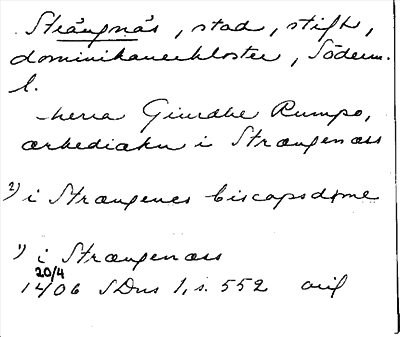 Strängnäs, stad, stift,
dominikanerkloster, Söderm.
l.
herra Giurdhe Rumpo,
ærkediakn i Strængenæs
2) i Strængenes biscopsdøme
1) i Strængenæs
20/4
1406 SDns 1, s. 552 avig